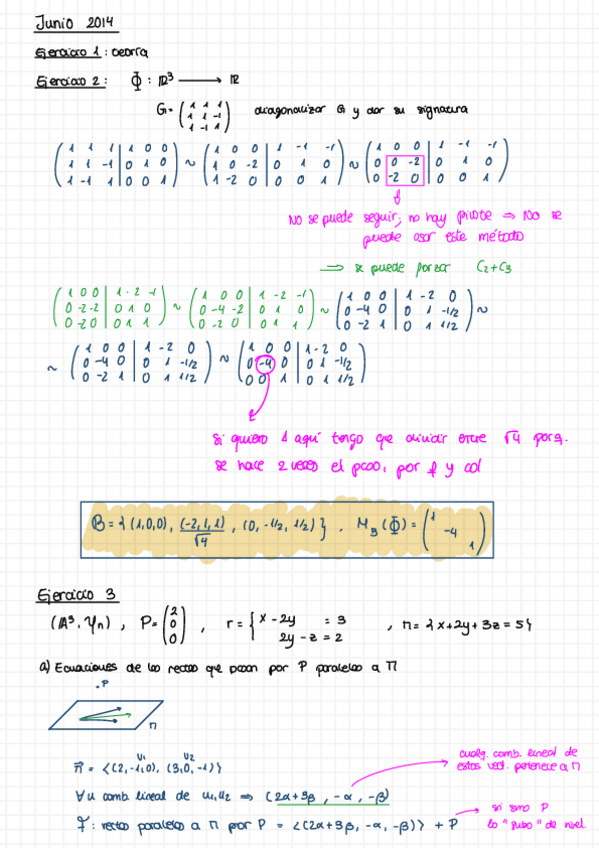 Junio 2014
Ejercicio 1: teoría
Ejercicio 2: Φ: ℝ³ ⟶ ℝ
G = (1 1 1 / 1 1 -1 / 1 -1 1) diagonalizar G y dar su signatura
(1 1 1 | 1 0 0 / 1 1 -1 | 0 1 0 / 1 -1 1 | 0 0 1) ~ (1 0 0 | 1 -1 -1 / 1 0 -2 | 0 1 0 / 1 -2 0 | 0 0 1) ~ (1 0 0 | 1 -1 -1 / 0 0 -2 | 0 1 0 / 0 -2 0 | 0 0 1)
No se puede seguir, no hay pivote ⇒ No se
puede usar este método
⟹ se puede forzar C2+C3
(1 0 0 | 1 -2 -1 / 0 -2 -2 | 0 1 0 / 0 -2 0 | 0 1 1) ~ (1 0 0 | 1 -2 -1 / 0 -4 -2 | 0 1 0 / 0 -2 0 | 0 1 1) ~ (1 0 0 | 1 -2 0 / 0 -4 0 | 0 1 -1/2 / 0 -2 1 | 0 1 1/2) ~
~ (1 0 0 | 1 -2 0 / 0 -4 0 | 0 1 -1/2 / 0 -2 1 | 0 1 1/2) ~ (1 0 0 | 1 -2 0 / 0 -4 0 | 0 1 -1/2 / 0 0 1 | 0 1 1/2)
si quiero 1 aquí tengo que dividir entre √4 porq.
se hace 2 veces el paso, por f y col
B = { (1,0,0), (-2,1,1)/√4, (0,-1/2,1/2) }. M_B(Φ) = (1 / -4 / 1)
Ejercicio 3
P = (2 / 0 / 0), r = { x - 2y = 3 / 2y - z = 2, π = {x+2y+3z=5}
a) Ecuaciones de las rectas que pasan por P paralelas a π
.P
π
u1 u2
π⃗ = <(2,-1,0), (3,0,-1)>
cualq. comb. lineal de
estos vect. pertenece a π
∀u comb. lineal de u1,u2 ⟹ (2α+3β, -α, -β)
: rectas paralelas a π por P = <(2α+3β, -α, -β)> + P
si sumo P
lo "subo" de nivel.